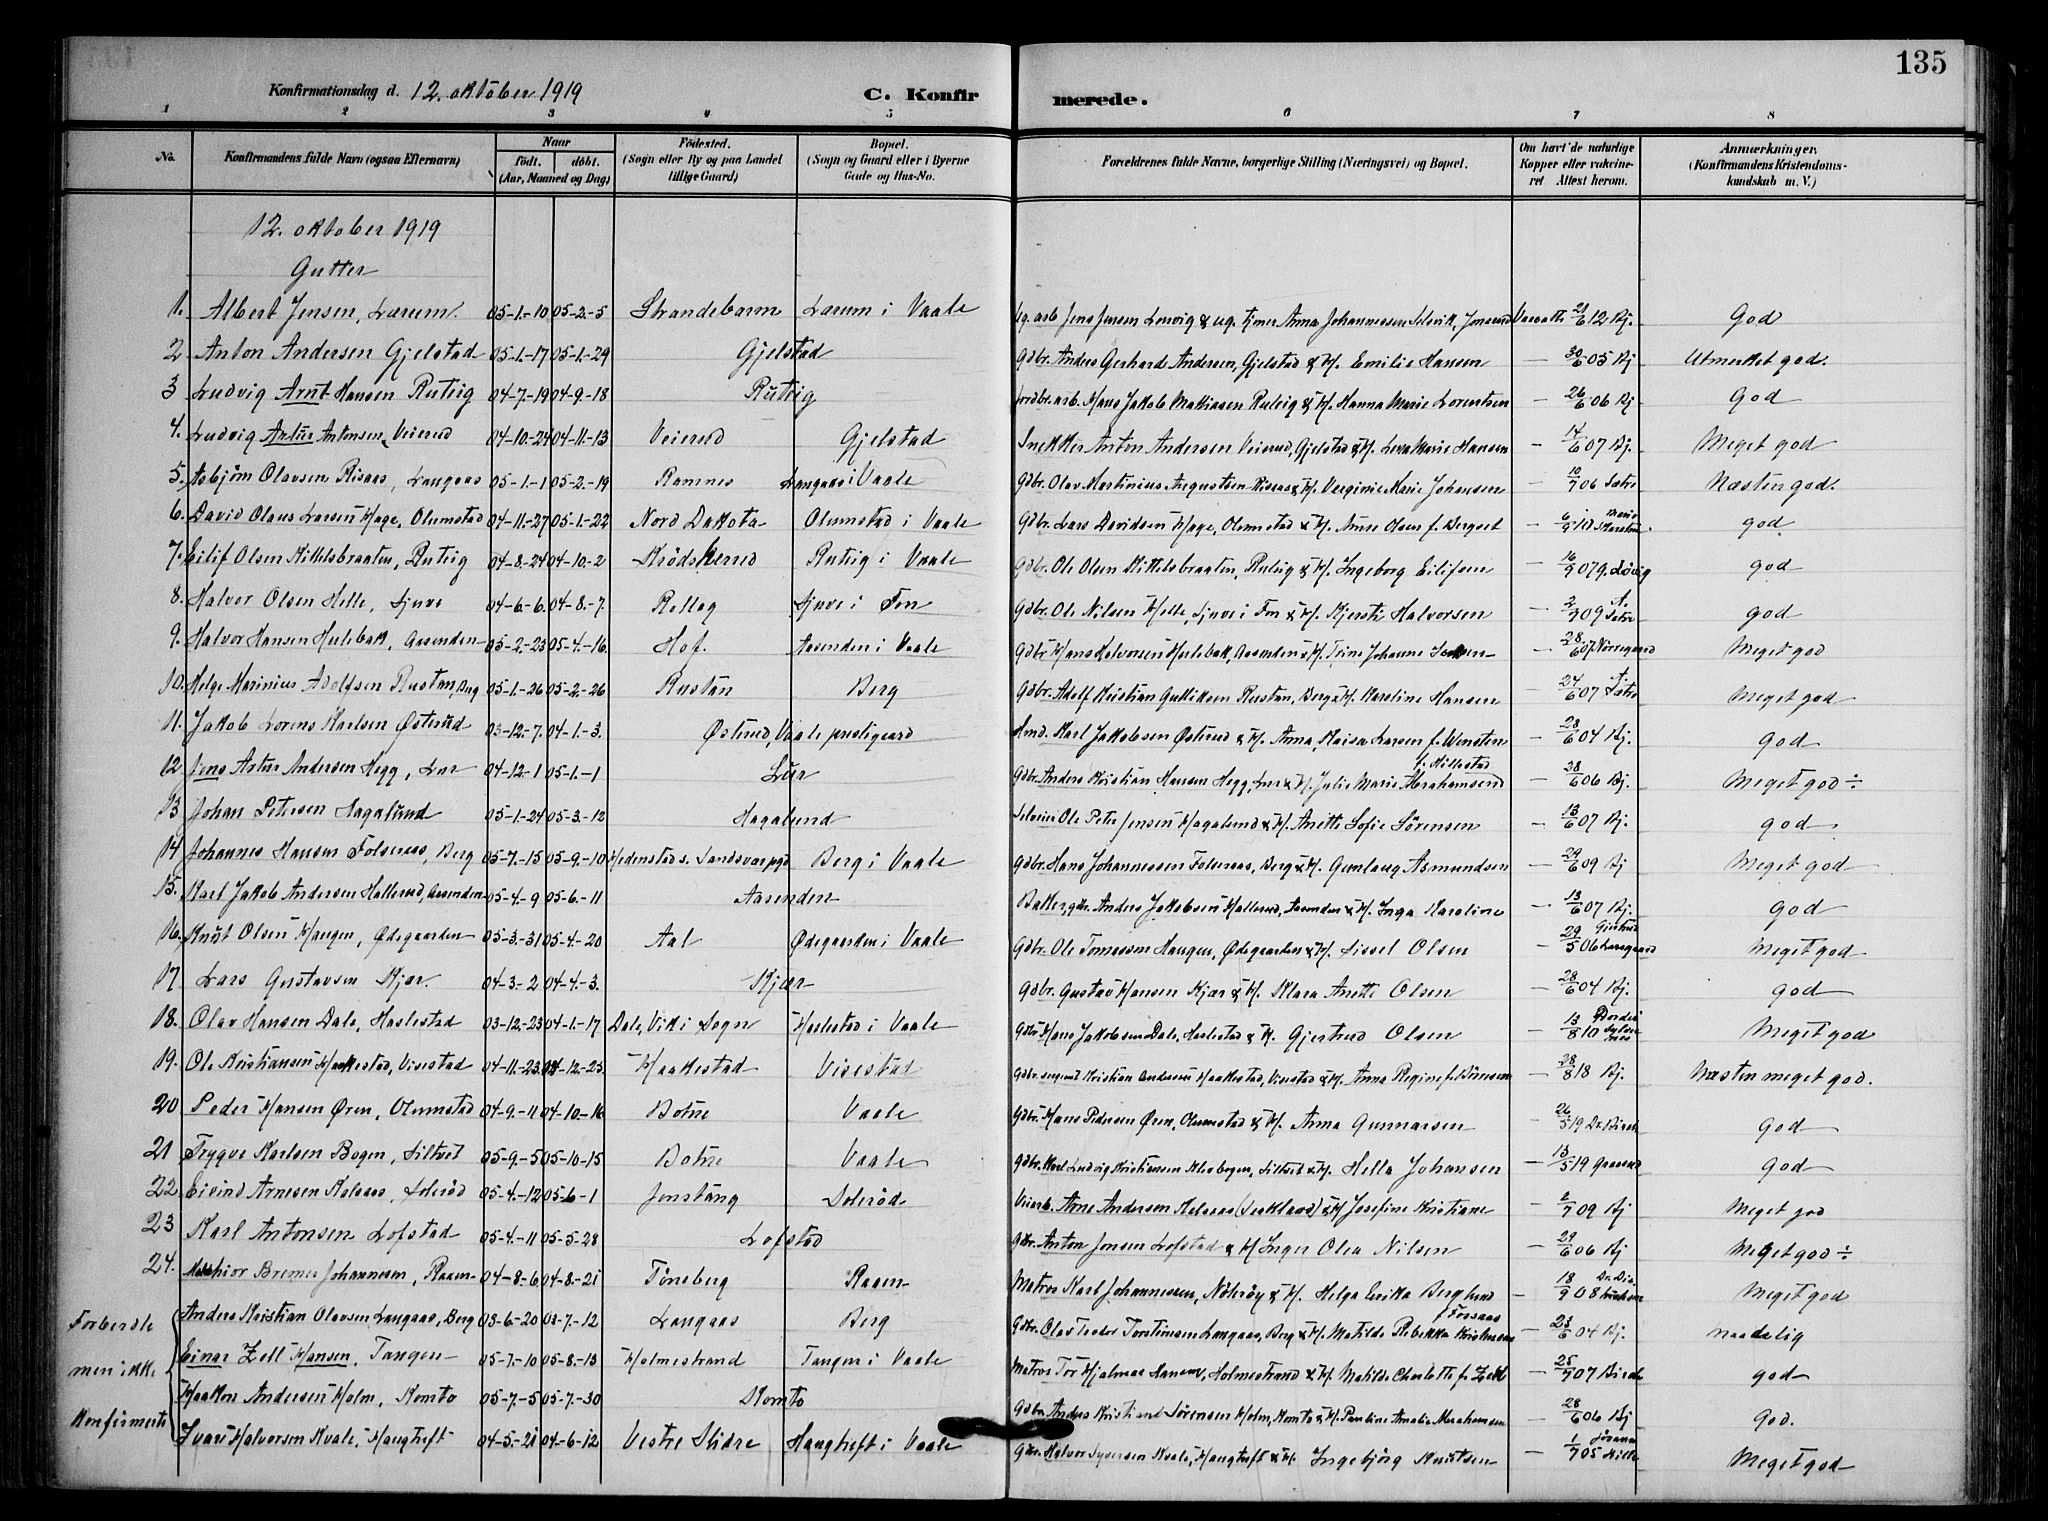 135
Konfirmationsdag d. 12. oktober 1919 C. Konfirmerede.
1 2 3 4 5 6 7 8
No. Konfirmandens fulde Navn (ogsaa Efternavn) Naar født. døbt. (Aar, Maaned og Dag) Fødested. (Sogn eller By og paa Landet tillige Gaard) Bopæl. (Sogn og Gaard eller i Byerne Gade og Hus-No. Forældrenes fulde Navne, borgerlige Stilling (Næringsvei) og Bopæl. Om havt de naturlige Kopper eller vakcineret Attest herom. Anmærkninger. (Konfirmandens Kristendomskundskab m. V.)
12. oktober 1919
Gutter
1. Albert Jensen, Lærum. 05-1.-10 05-2.-5 Strandebarm Lærum i Vaale Jens Jensen & Anna Johannessen 21/6 12 Bj. God
2 Anton Andersen Gjelstad 05-1.-17 05-1.-29 Gjelstad Gdbr. Anders Gerhard Andersen, Gjelstad & H. Emilie Hansen — 30/6 05 Bj Utmerket god.
3 Ludvig Arnt Hansen Rutvig 04-7.-19 04-9.-18 Rutvig Hans Jakob Mathiasen Rutvig & H. Hanna Marie Lorentsen — 26/6 06 Bj God
4. Ludvig Artur Antonsen, Veierud 04-10.-24 04-11.-13 Veierud Gjelstad Snekker Anton Andersen Veierud, Gjelstad & H. Marie Hansen — 14/6 07 Bj. Meget god
5. Asbjørn Olavsen Risaas, Langaas 05-1.-1 05-2.-19 Ramnes Langaas i Vaale Gdbr. Olav Martinius Augustsen Risaas & H. Verginie Marie Johansen — 10/7 06 Sætre Næsten god.
6. David Olaus Larsen Hage, Olumstad 04-11.-27 05-1.-22 Nord Dakota Olumstad i Vaale Gdbr. Lars Davidsen Hage, Olumstad & H. Anne Olsen f. Berget — 6/9 10 god
7. Eilif Olsen Kittelsbraaten, Rutvig 04-8.-24 04-10.-2 Krødsherred Rutvig i Vaale Gdbr. Ole Olsen Kittelsbraaten, Rutvig & H. Ingeborg Eilifsen — 16/9 07 god
8. Halvor Olsen Helle, Sjuve 04-6.-6. 04-8.-7. Rollag Sjuve i Fon Gdbr. Ole Nilsen Helle, Sjuve i Fon & H. Kjersti Halvorsen — 09 Sætre god
9. Halvor Hansen Hulebak, Aasenden 05-2.-23 05-4.-16. Hof. Aasenden i Vaale Gdbr Hans Halvorsen Hulebak, Aasenden & H. Trine Johanne — 28/6 07. Nørregaard Meget god
10. Helge Marinius Adolfsen Rustan, Berg 05-1.-26 05-2.-26 Rustan Berg Gdbr. Adolf Kristian Gulliksen Rustan, Berg & H. Karoline Hansen — 24/6 07 Sætre Meget god
11. Jakob Lorens Karlsen Østerud 03-12.-7. 04-1.-3. Østerud, Vaale prestegaard Karl Jakobsen Østerud & H. Anna Maisa Larsen f. — 28/6 04 Bj. god
12 Jens Artur Andersen Hegg, Lur 04-12.-1 05-1.-1 Lur Gdbr. Anders Kristian Hansen Hegg, Lur & H. Julie Marie Abrahamsen f. Hillestad — 28/6 06 Bj. Meget god ÷
13 Johan Petersen Hagalund 05-1.-24 05-3.-12 Hagalund Ole Peter Jensen Hagalund & H. Anette Sofie Sørensen — 13/6 07 Bj. god
14 Johannes Hansen Folseraas, Berg 05-7.-15 05-9.-10 Hedenstad s. Sandsvær pgd Berg i Vaale Gdbr. Hans Johannessen Folseraas, Berg & H. Gunlaug Asmundsen — 29/6 09 Bj Meget god
15. Karl Jakob Andersen Hallerud, Aasenden 05-4.-9 05-6.-11 Aasenden Anders Jakobsen Hallerud, Aasenden & H. Inga Karoline — 13/6 07 Bj. god
16. Knut Olsen Haugen, Ødegaarden 05-3.-31 05-4.-20 Aal Ødegaarden i Vaale Gdbr. Ole Tomassen Haugen, Ødegaarden & H. Sissel Olsen — 29/5 06 Meget god
17 Lars Gustavsen Kjær. 04-3.-2 04-4.-3. Kjær Gdbr. Gustav Hansen Kjær & H. Klara Anette Olsen — 28/6 04 Bj. god
18. Olav Hansen Dale, Haslestad 03-12.-23 04-1.-17 Dale, Vik i Sogn Haslestad i Vaale Gdbr Hans Jakobsen Dale, Haslestad & H. Gjertrud Olsen — 13/8 10 Meget god
19. Ole Kristiansen Haakestad, Visestad 04-11.-23 04-12.-25. Haakestad Visestad Gdbr. sergeant Kristian Andersen Haakestad, Visestad & H. Anna Regine f. — 28/8 18 Bj. Næsten meget god.
20 Peder Hansen Øren, Olumstad 04-9.-11 04-10.-16 Botne Vaale Gdbr. Hans Pedersen Øren, Olumstad & H. Anna Gunnarsen — 26/5 19 god
21 Trygve Karlsen Bogen, Siltvet 05-9.-5 05-10.-15 Botne Vaale Gdbr. Karl Ludvig Kristiansen, Siltvet & H. Hella Johansen — 13/5 19 God
22 Eivind Arnesen Kalsaas, Solerød 05-4.-12 05-6.-1 Solerød Arne Andersen Kalsaas & H Josefine Kristiane — 09 Bj Meget god
23 Karl Antonsen Lofstad 05-4.-11 05-5.-28 Lofstad Gdbr. Anton Jonsen Lofstad & H Inger Olea Nilsen — 29/6 06 Bj Meget god ÷
24. Melchior Bremer Johannesen, Raaen 04-8.-6 04-8.-21 Tønsberg Raaen Matros Karl Johannesen, Nøterøy & H. Helga Erika Berglund — 18/9 08 Meget god
Forberedte men ikke Konfirmerte
Anders Kristian Olavsen Langaas, Berg 03-6.-20 03-7.-12 Langaas Berg Gdbr. Olav Torstensen Langaas, Berg & H. Matilde Rebekka Kristiansen — 23/6 04 Bj. naadelig
Einar Zell Hansen, Tangen 05-7.-10 05-8.-13 Holmestrand Tangen i Vaale Matros Tor Hjalmar Hansen, Holmestrand & H. Matilde Charlotte f. Zell — 25/7 07 god
Haakon Andersen Holm, Komto 05-7.-5 05-7.-30 Komto Gdbr. Anders Kristian Sørensen Holm, Komto & H. Pauline Amalie Abrahamsen — 28/6 06 Bj God.
Ivar Halvorsen Kvale, Haugtuft 04-5.-21 04-6.-12 Vestre Slidre Haugtuft i Vaale Gdbr. Halvor Syversen Kvale, Haugtuft & H. Ingebjørg Knutsen — 1/7 05 Meget god